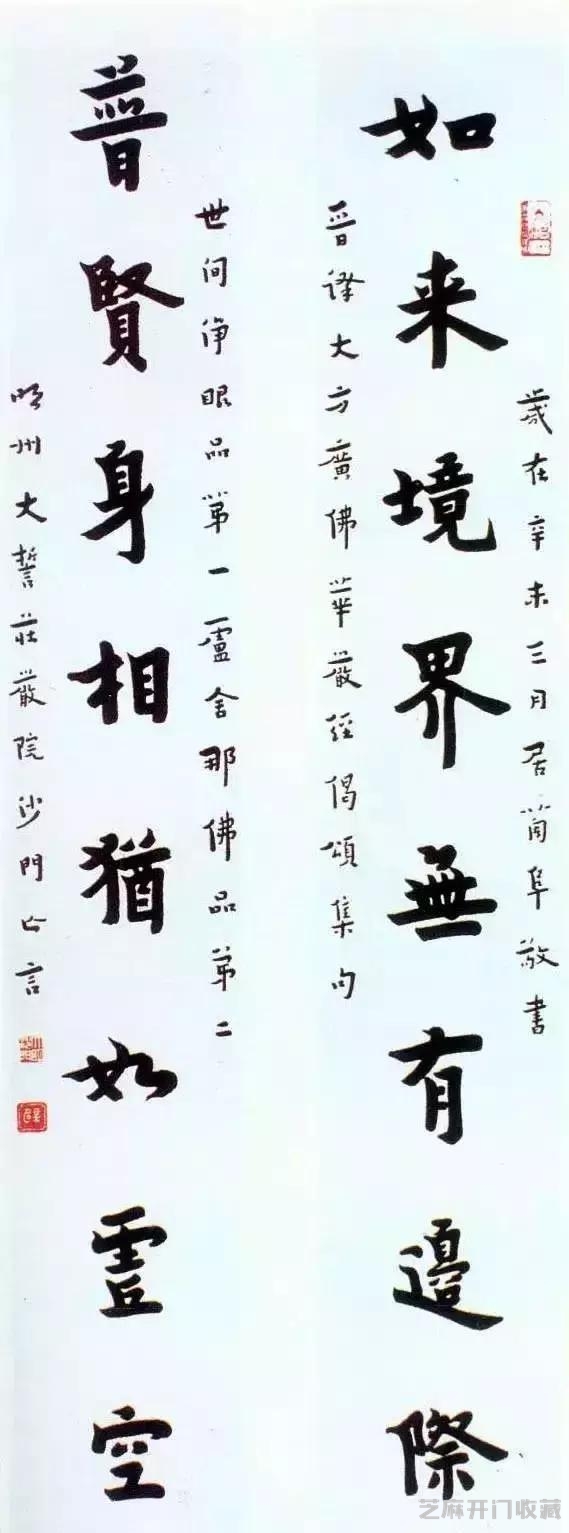 歲在辛未三月居蕳阜敬書
如来境界無有邊際
晉譯大方廣佛華嚴經偈頌集句
世间淨眼品第一盧舍那佛品第二
普賢身相猶如虛空
明州大誓莊嚴院沙門亡言
芝麻开门收藏